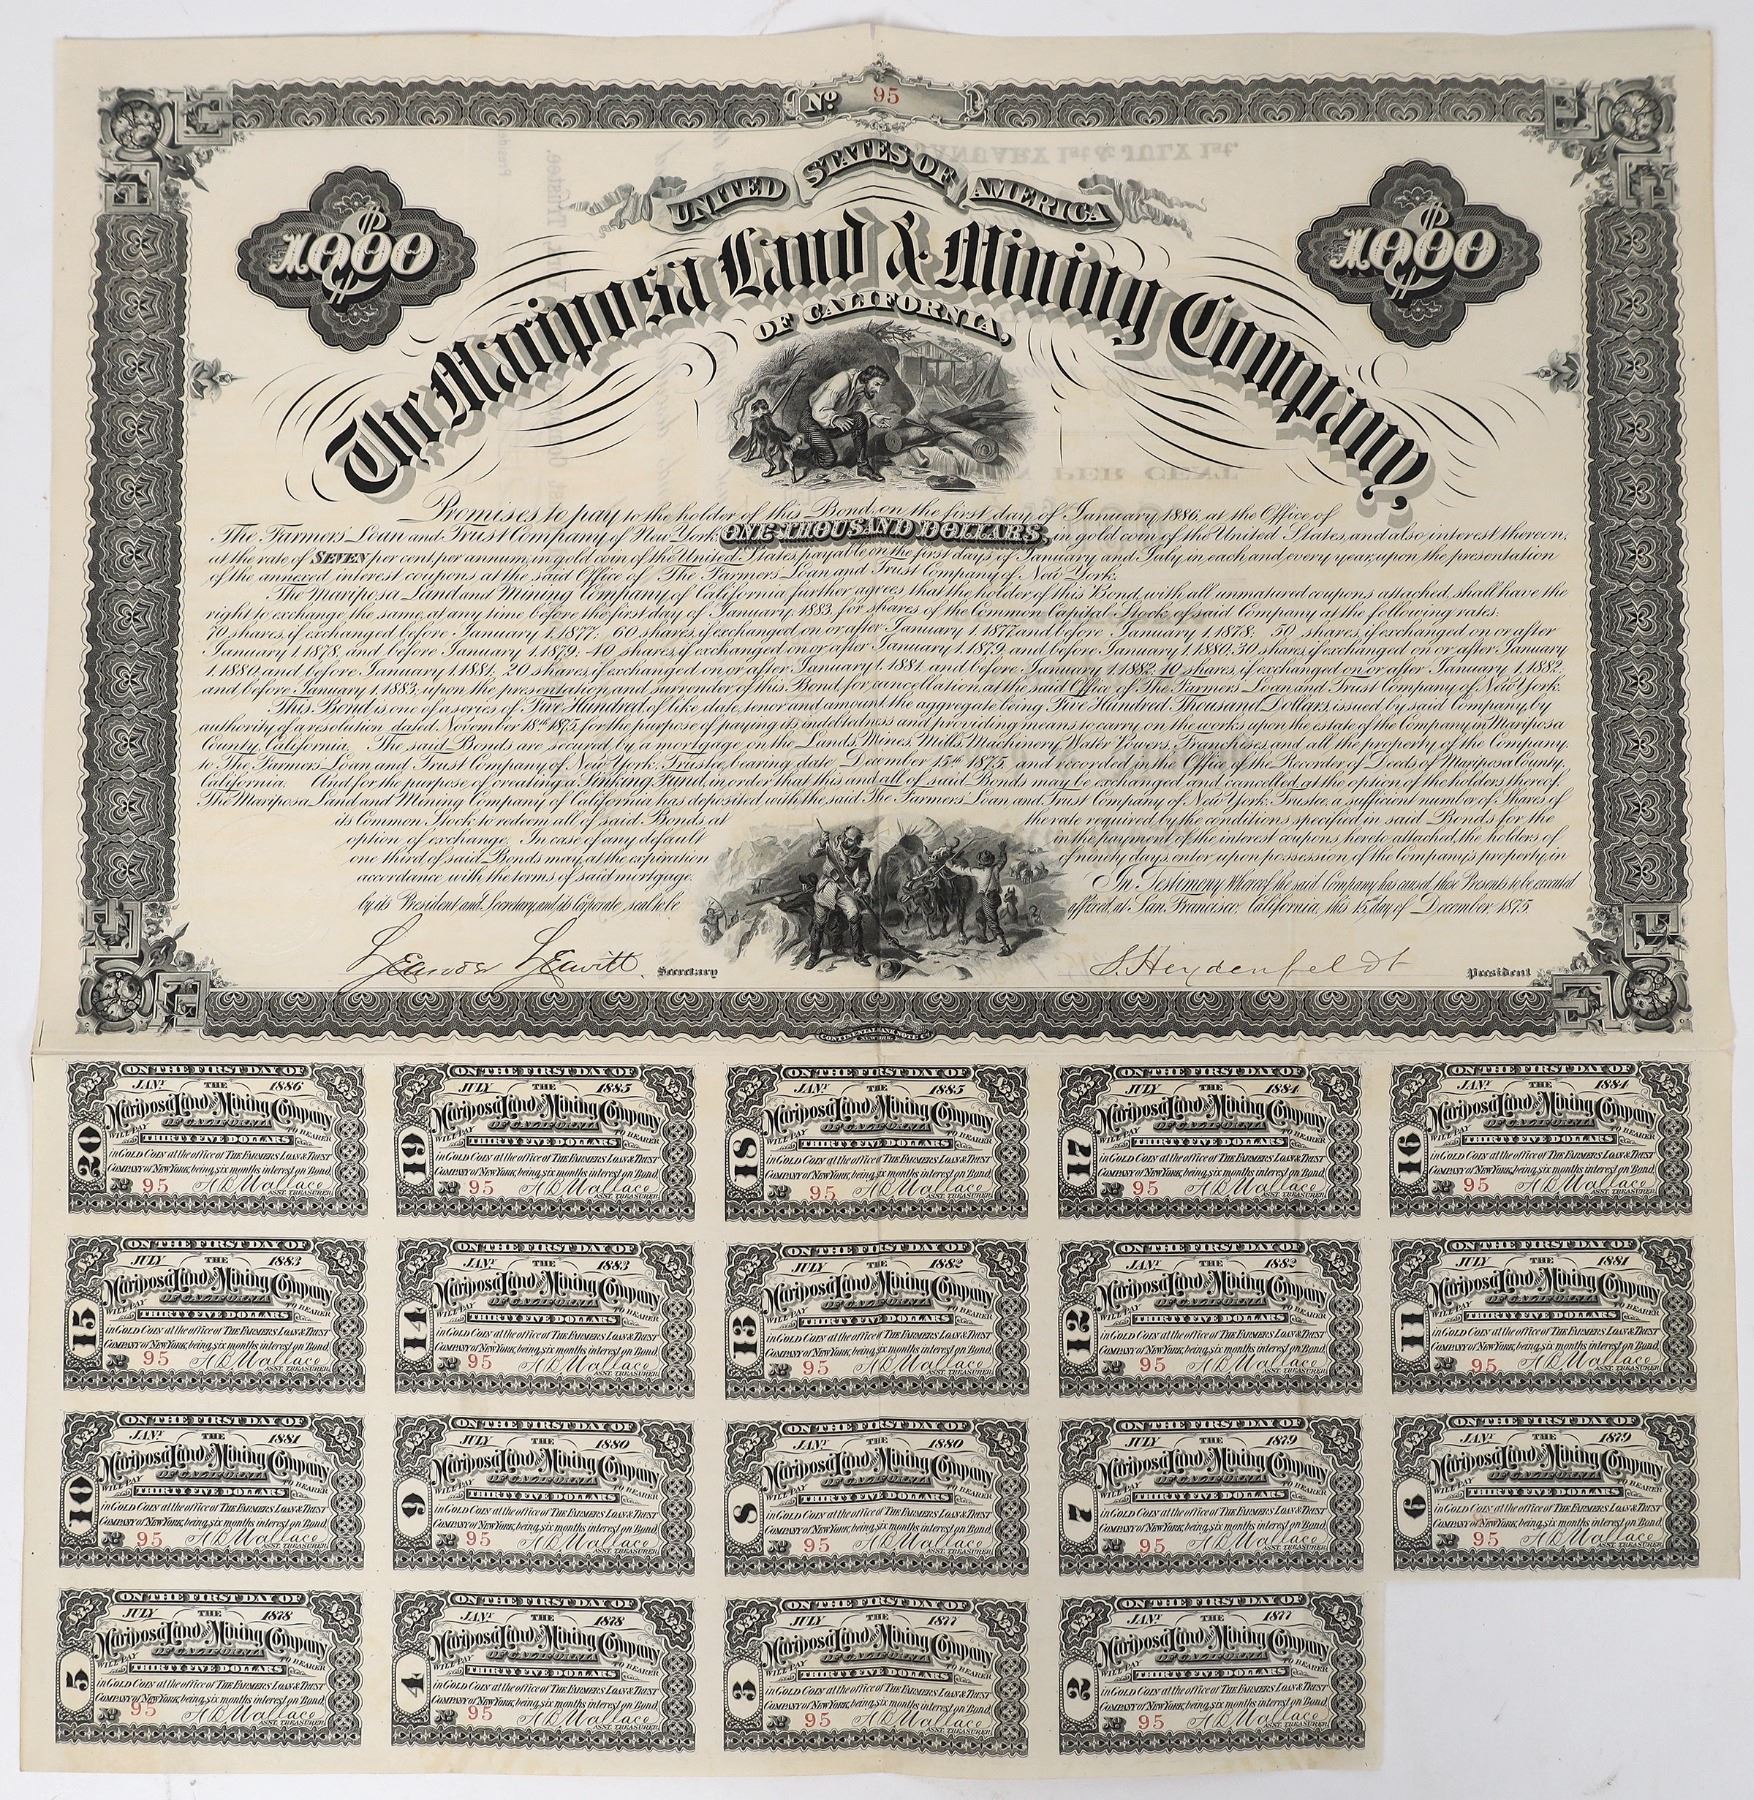 No. 95
UNITED STATES OF AMERICA
$1000
$1000
The Mariposa Land & Mining Company,
OF CALIFORNIA,
Promises to pay to the holder of this Bond, on the first day of January 1886, at the Office of
The Farmers' Loan and Trust Company of New York, ONE THOUSAND DOLLARS, in gold coin of the United States, and also interest thereon,
at the rate of SEVEN per cent. per annum, in gold coin of the United States, payable on the first days of January and July, in each and every year, upon the presentation
of the annexed interest coupons at the said Office of The Farmers' Loan and Trust Company of New York.
The Mariposa Land and Mining Company of California further agrees that the holder of this Bond, with all unmatured coupons attached, shall have the
right to exchange the same, at any time before the first day of January, 1883, for shares of the Common Capital Stock, of said Company at the following rates:
70 shares, if exchanged before January 1, 1877; 60 shares, if exchanged on or after January 1, 1877 and before January 1, 1878; 50 shares, if exchanged on or after
January 1, 1878, and before January 1, 1879; 40 shares, if exchanged on or after January 1, 1879, and before January 1, 1880; 30 shares, if exchanged on or after January
1, 1880, and before January 1, 1881; 20 shares, if exchanged on or after January 1, 1881, and before January 1, 1882; 10 shares, if exchanged on or after January 1, 1882,
and before January 1, 1883, upon the presentation and surrender of this Bond, for cancellation, at the said Office of The Farmers' Loan and Trust Company of New York.
This Bond is one of a series of Five Hundred of like date, tenor and amount, the aggregate being Five Hundred Thousand Dollars, issued by said Company, by
authority of a resolution dated November 18th 1875, for the purpose of paying its indebtedness and providing means to carry on the works upon the estate of the Company, in Mariposa
County, California. The said Bonds are secured by a mortgage, on the Lands, Mines, Mills, Machinery, Water Powers, Franchises, and all the property of the Company,
to The Farmers' Loan and Trust Company of New York, Trustee, bearing date December 15th 1875, and recorded in the Office of the Recorder of Deeds of Mariposa County,
California. And for the purpose of creating a Sinking Fund, in order that this and all of said Bonds may be exchanged and cancelled, at the option of the holders thereof,
The Mariposa Land and Mining Company of California has deposited with the said The Farmers' Loan and Trust Company of New York, Trustee, a sufficient number of Shares of
its Common Stock to redeem all of said Bonds at the rate required by the conditions specified in said Bonds for the
option of exchange. In case of any default in the payment of the interest coupons hereto attached, the holders of
one third of said Bonds may, at the expiration of ninety days, enter upon possession of the Company's property, in
accordance with the terms of said mortgage. In Testimony Whereof, the said Company has caused these Presents to be executed
by its President and Secretary, and its Corporate seal to be affixed, at San Francisco, California, this 15th day of December 1875.
Leander Leavitt Secretary S. Heydenfeldt President
CONTINENTAL BANK NOTE CO. NEW YORK
ON THE FIRST DAY OF
JANY. THE 1886
Mariposa Land and Mining Company
OF CALIFORNIA
WILL PAY TO BEARER
THIRTY FIVE DOLLARS
in GOLD COIN at the office of THE FARMERS LOAN & TRUST
COMPANY of NEW YORK, being six months interest on Bond
20 No 95 A B Wallace
ASST. TREASURER
ON THE FIRST DAY OF
JULY THE 1885
Mariposa Land and Mining Company
OF CALIFORNIA
WILL PAY TO BEARER
THIRTY FIVE DOLLARS
in GOLD COIN at the office of THE FARMERS LOAN & TRUST
COMPANY of NEW YORK, being six months interest on Bond
19 No 95 A B Wallace
ASST. TREASURER
ON THE FIRST DAY OF
JANY. THE 1885
Mariposa Land and Mining Company
OF CALIFORNIA
WILL PAY TO BEARER
THIRTY FIVE DOLLARS
in GOLD COIN at the office of THE FARMERS LOAN & TRUST
COMPANY of NEW YORK, being six months interest on Bond
18 No 95 A B Wallace
ASST. TREASURER
ON THE FIRST DAY OF
JULY THE 1884
Mariposa Land and Mining Company
OF CALIFORNIA
WILL PAY TO BEARER
THIRTY FIVE DOLLARS
in GOLD COIN at the office of THE FARMERS LOAN & TRUST
COMPANY of NEW YORK, being six months interest on Bond
17 No 95 A B Wallace
ASST. TREASURER
ON THE FIRST DAY OF
JANY. THE 1884
Mariposa Land and Mining Company
OF CALIFORNIA
WILL PAY TO BEARER
THIRTY FIVE DOLLARS
in GOLD COIN at the office of THE FARMERS LOAN & TRUST
COMPANY of NEW YORK, being six months interest on Bond
16 No 95 A B Wallace
ASST. TREASURER
ON THE FIRST DAY OF
JULY THE 1883
Mariposa Land and Mining Company
OF CALIFORNIA
WILL PAY TO BEARER
THIRTY FIVE DOLLARS
in GOLD COIN at the office of THE FARMERS LOAN & TRUST
COMPANY of NEW YORK, being six months interest on Bond
15 No 95 A B Wallace
ASST. TREASURER
ON THE FIRST DAY OF
JANY. THE 1883
Mariposa Land and Mining Company
OF CALIFORNIA
WILL PAY TO BEARER
THIRTY FIVE DOLLARS
in GOLD COIN at the office of THE FARMERS LOAN & TRUST
COMPANY of NEW YORK, being six months interest on Bond
14 No 95 A B Wallace
ASST. TREASURER
ON THE FIRST DAY OF
JULY THE 1882
Mariposa Land and Mining Company
OF CALIFORNIA
WILL PAY TO BEARER
THIRTY FIVE DOLLARS
in GOLD COIN at the office of THE FARMERS LOAN & TRUST
COMPANY of NEW YORK, being six months interest on Bond
13 No 95 A B Wallace
ASST. TREASURER
ON THE FIRST DAY OF
JANY. THE 1882
Mariposa Land and Mining Company
OF CALIFORNIA
WILL PAY TO BEARER
THIRTY FIVE DOLLARS
in GOLD COIN at the office of THE FARMERS LOAN & TRUST
COMPANY of NEW YORK, being six months interest on Bond
12 No 95 A B Wallace
ASST. TREASURER
ON THE FIRST DAY OF
JULY THE 1881
Mariposa Land and Mining Company
OF CALIFORNIA
WILL PAY TO BEARER
THIRTY FIVE DOLLARS
in GOLD COIN at the office of THE FARMERS LOAN & TRUST
COMPANY of NEW YORK, being six months interest on Bond
11 No 95 A B Wallace
ASST. TREASURER
ON THE FIRST DAY OF
JANY. THE 1881
Mariposa Land and Mining Company
OF CALIFORNIA
WILL PAY TO BEARER
THIRTY FIVE DOLLARS
in GOLD COIN at the office of THE FARMERS LOAN & TRUST
COMPANY of NEW YORK, being six months interest on Bond
10 No 95 A B Wallace
ASST. TREASURER
ON THE FIRST DAY OF
JULY THE 1880
Mariposa Land and Mining Company
OF CALIFORNIA
WILL PAY TO BEARER
THIRTY FIVE DOLLARS
in GOLD COIN at the office of THE FARMERS LOAN & TRUST
COMPANY of NEW YORK, being six months interest on Bond
9 No 95 A B Wallace
ASST. TREASURER
ON THE FIRST DAY OF
JANY. THE 1880
Mariposa Land and Mining Company
OF CALIFORNIA
WILL PAY TO BEARER
THIRTY FIVE DOLLARS
in GOLD COIN at the office of THE FARMERS LOAN & TRUST
COMPANY of NEW YORK, being six months interest on Bond
8 No 95 A B Wallace
ASST. TREASURER
ON THE FIRST DAY OF
JULY THE 1879
Mariposa Land and Mining Company
OF CALIFORNIA
WILL PAY TO BEARER
THIRTY FIVE DOLLARS
in GOLD COIN at the office of THE FARMERS LOAN & TRUST
COMPANY of NEW YORK, being six months interest on Bond
7 No 95 A B Wallace
ASST. TREASURER
ON THE FIRST DAY OF
JANY. THE 1879
Mariposa Land and Mining Company
OF CALIFORNIA
WILL PAY TO BEARER
THIRTY FIVE DOLLARS
in GOLD COIN at the office of THE FARMERS LOAN & TRUST
COMPANY of NEW YORK, being six months interest on Bond
6 No 95 A B Wallace
ASST. TREASURER
ON THE FIRST DAY OF
JULY THE 1878
Mariposa Land and Mining Company
OF CALIFORNIA
WILL PAY TO BEARER
THIRTY FIVE DOLLARS
in GOLD COIN at the office of THE FARMERS LOAN & TRUST
COMPANY of NEW YORK, being six months interest on Bond
5 No 95 A B Wallace
ASST. TREASURER
ON THE FIRST DAY OF
JANY. THE 1878
Mariposa Land and Mining Company
OF CALIFORNIA
WILL PAY TO BEARER
THIRTY FIVE DOLLARS
in GOLD COIN at the office of THE FARMERS LOAN & TRUST
COMPANY of NEW YORK, being six months interest on Bond
4 No 95 A B Wallace
ASST. TREASURER
ON THE FIRST DAY OF
JULY THE 1877
Mariposa Land and Mining Company
OF CALIFORNIA
WILL PAY TO BEARER
THIRTY FIVE DOLLARS
in GOLD COIN at the office of THE FARMERS LOAN & TRUST
COMPANY of NEW YORK, being six months interest on Bond
3 No 95 A B Wallace
ASST. TREASURER
ON THE FIRST DAY OF
JANY. THE 1877
Mariposa Land and Mining Company
OF CALIFORNIA
WILL PAY TO BEARER
THIRTY FIVE DOLLARS
in GOLD COIN at the office of THE FARMERS LOAN & TRUST
COMPANY of NEW YORK, being six months interest on Bond
2 No 95 A B Wallace
ASST. TREASURER